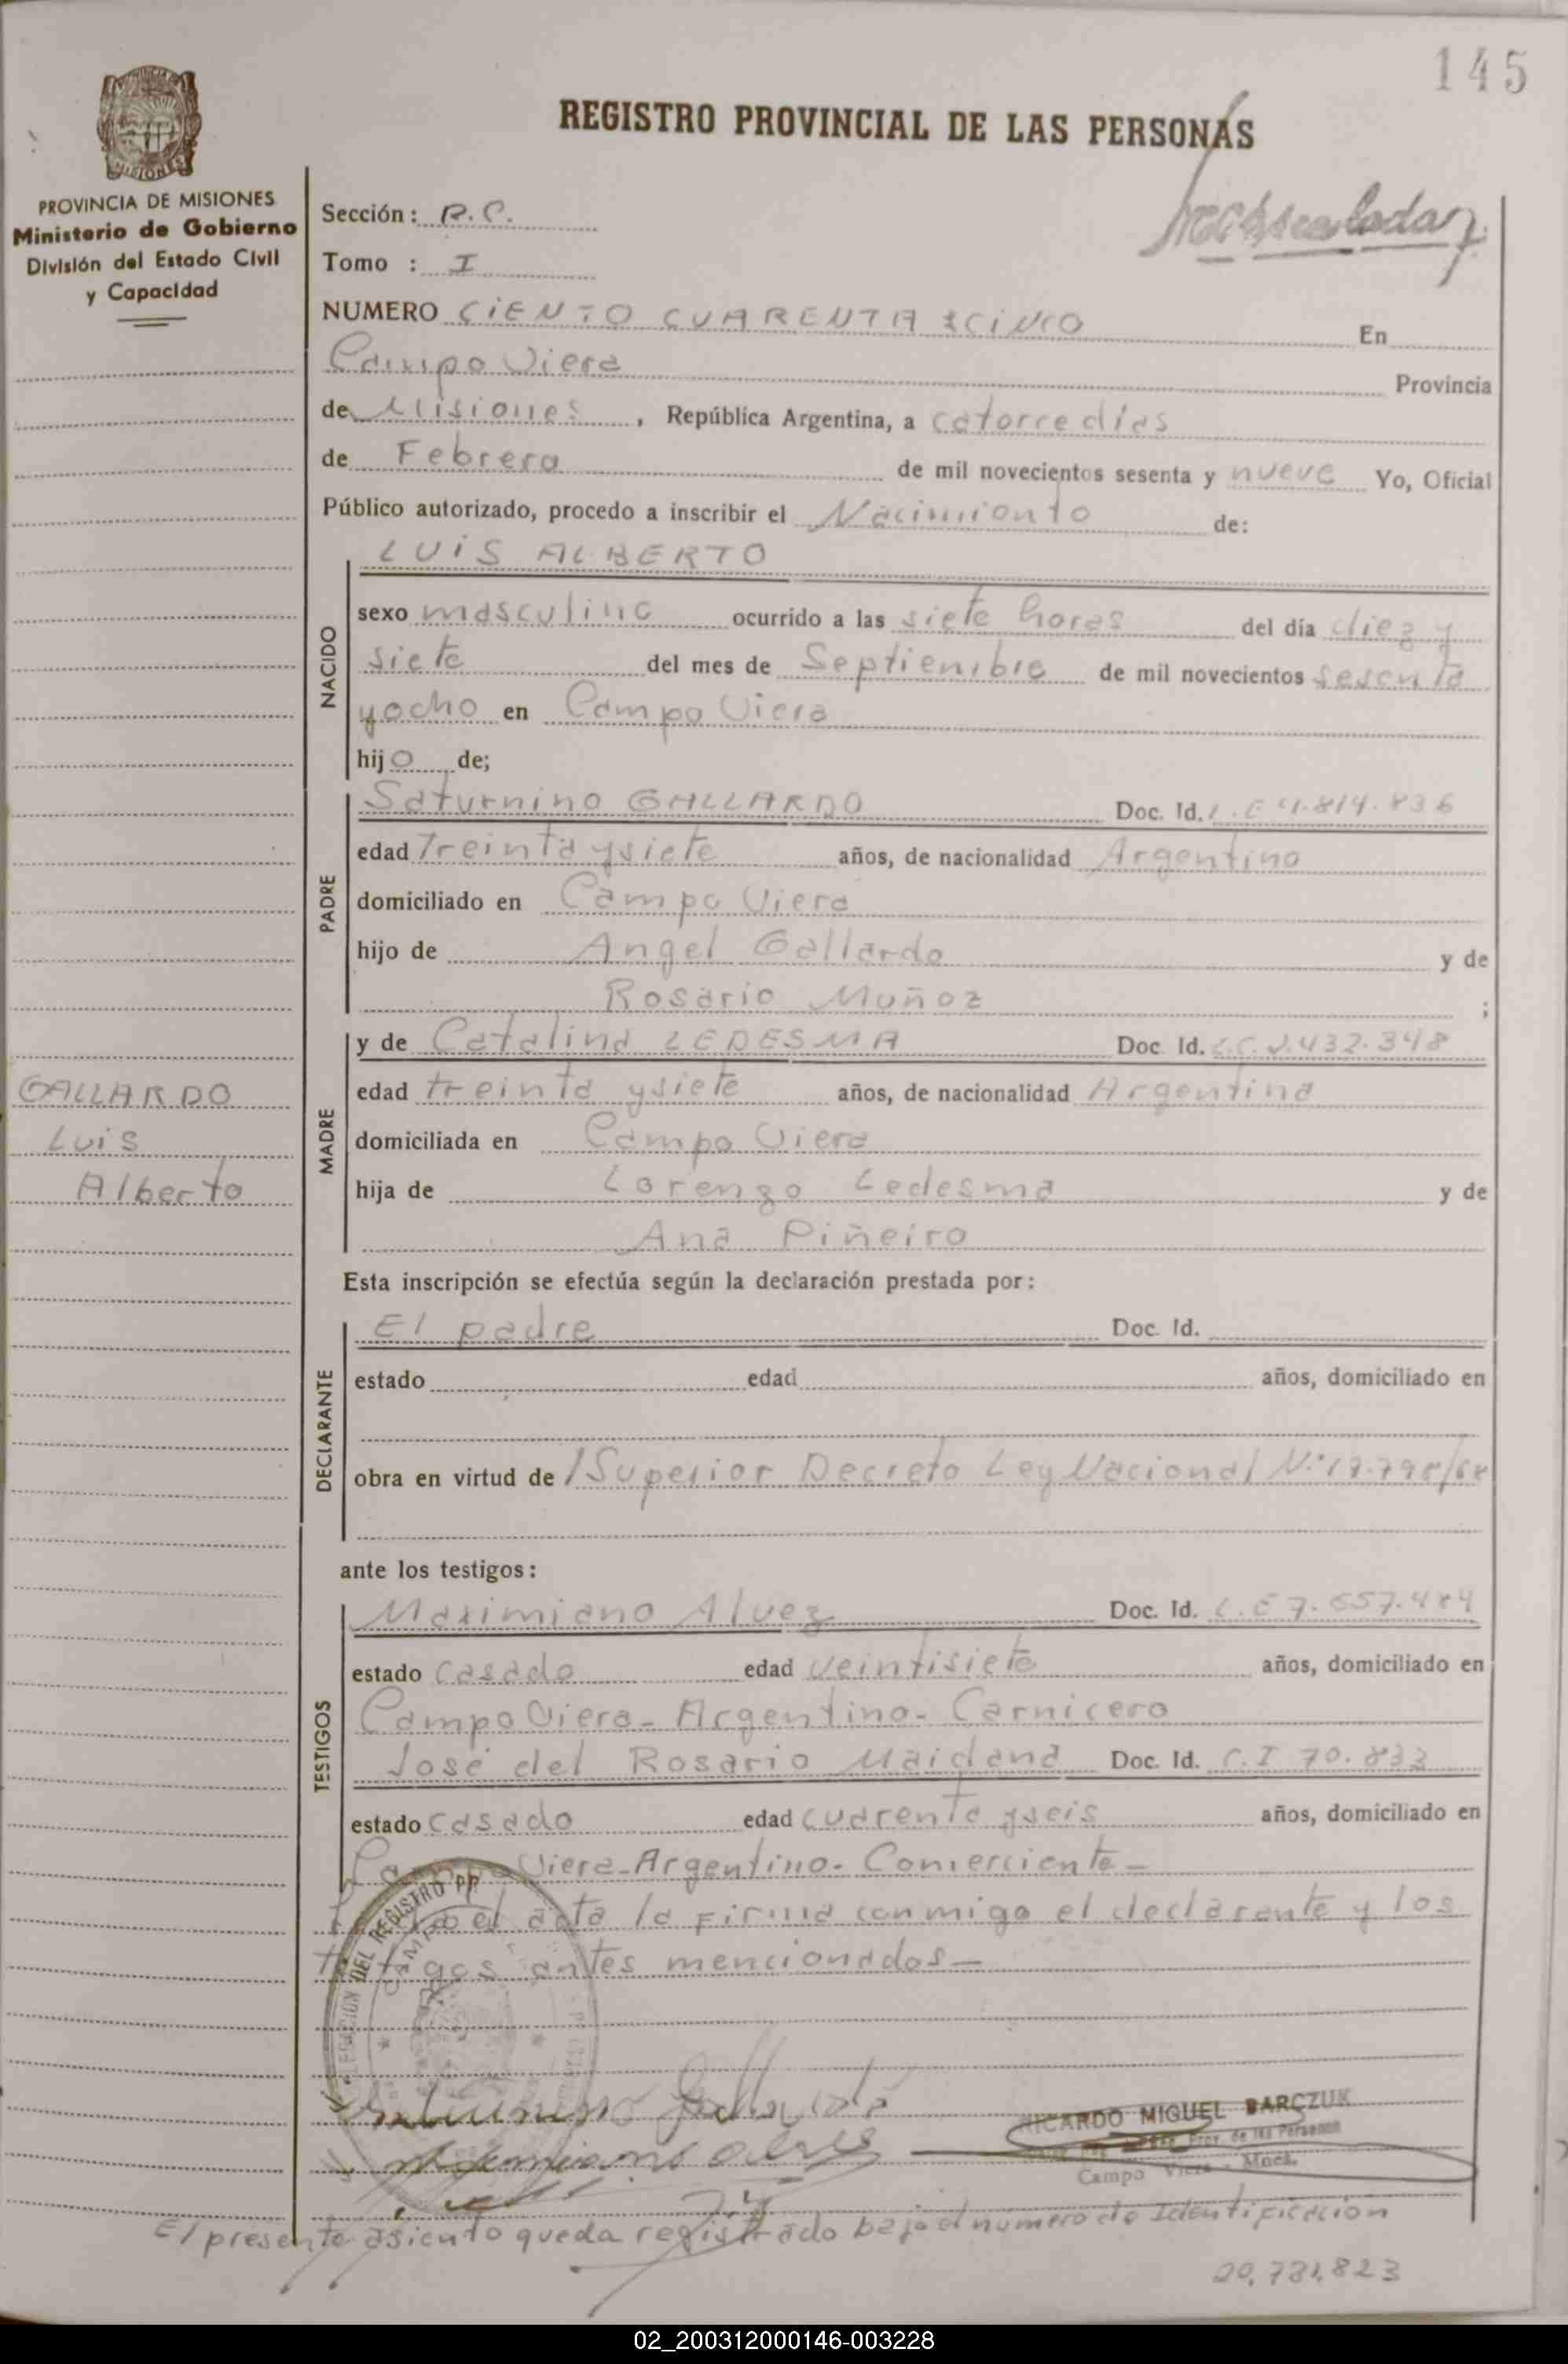 145
REGISTRO PROVINCIAL DE LAS PERSONAS
PROVINCIA DE MISIONES
Ministerio de Gobierno
División del Estado Civil
y Capacidad
Sección: R.C.
Tomo : I
NUMERO CIENTO CUARENTA Y CINCO En
Campo Viera Provincia
de Misiones, República Argentina, a catorce días
de Febrero de mil novecientos sesenta y nueve Yo, Oficial
Público autorizado, procedo a inscribir el Nacimiento de:
LUIS ALBERTO
NACIDO
sexo masculino ocurrido a las siete horas del día diez y
siete del mes de Septiembre de mil novecientos sesenta
y ocho en Campo Viera
hijo de;
PADRE
Saturnino GALLARDO Doc. Id. L.E 4.814.836
edad Treinta y siete años, de nacionalidad Argentino
domiciliado en Campo Viera
hijo de Angel Gallardo y de
Rosario Muñoz ;
MADRE
y de Catalina LEDESMA Doc. Id. L.C. 2.432.348
edad treinta y siete años, de nacionalidad Argentina
domiciliada en Campo Viera
hija de Lorenzo Ledesma y de
Ana Piñeiro
GALLARDO
Luis
Alberto
Esta inscripción se efectúa según la declaración prestada por:
DECLARANTE
El padre Doc. Id.
estado edad años, domiciliado en
obra en virtud de /Superior Decreto Ley Nacional N°
ante los testigos:
TESTIGOS
Maximiano Alvez Doc. Id. L.E 7.557.484
estado casado edad veintisiete años, domiciliado en
Campo Viera - Argentino - Carnicero
José del Rosario Maidana Doc. Id. C.I 70.833
estado casado edad cuarenta y seis años, domiciliado en
Campo Viera - Argentino - Comerciante -
el acta la firma conmigo el declarante y los
testigos antes mencionados -
DEL REGISTRO
RICARDO MIGUEL BARCZUK
Prov. de las Personas
Campo Viera - Mnes.
El presente asiento queda registrado bajo el numero de Identificación
20.731.823
02_200312000146-003228